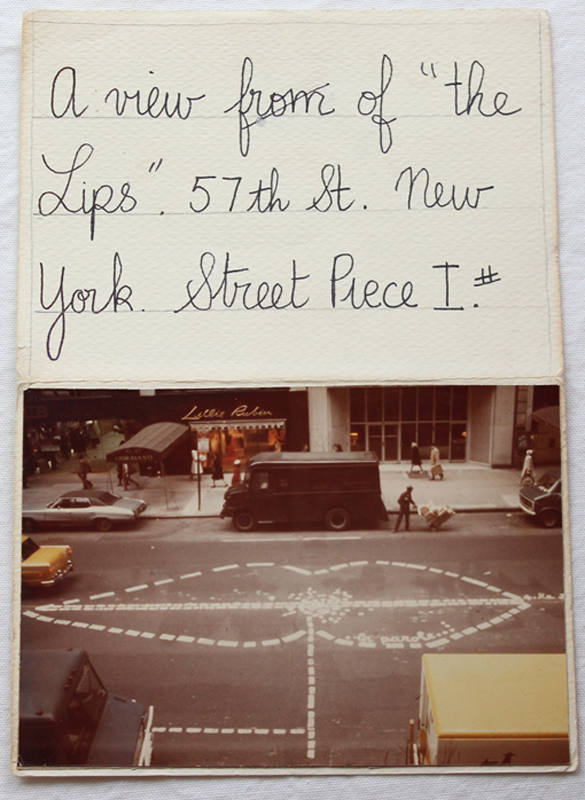 A view from of "the
Lips". 57th St. New
York. Street Piece I.#
Lillie Rubin